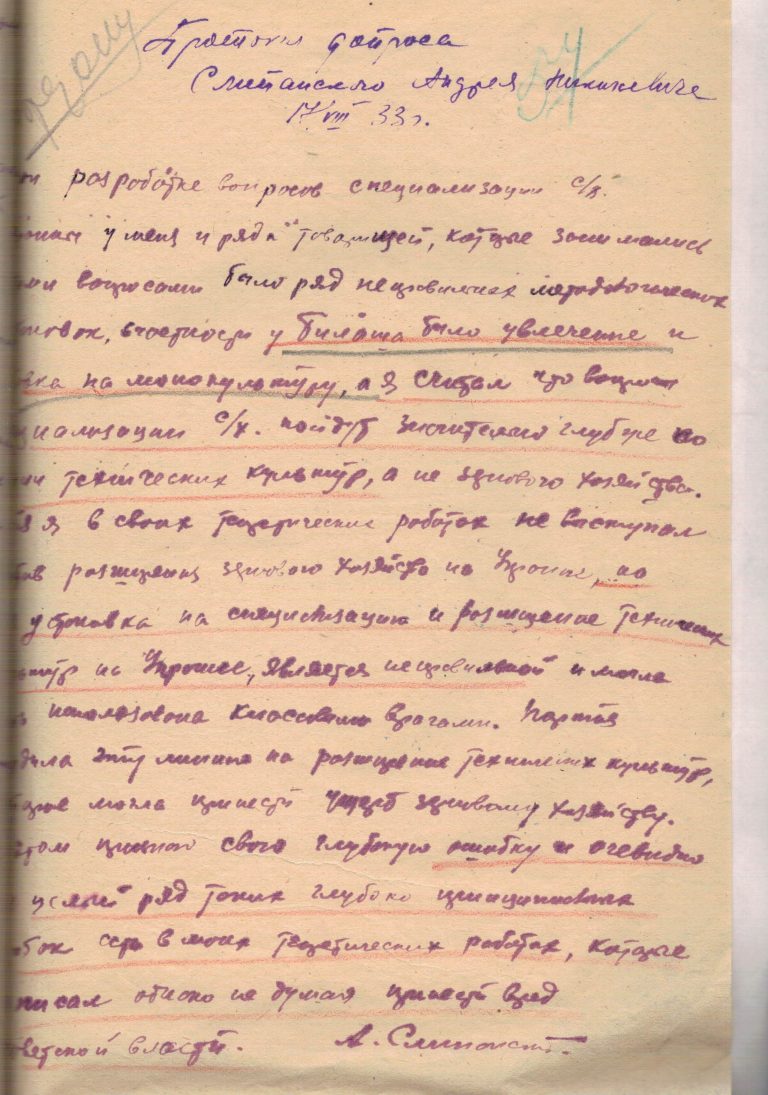 Протокол допроса
Слипанского Андрея
17/VIII 33 г.
разработке вопросов специализации с/х.
у меня и ряда товарищей, которые занимались
вопросами было ряд неправильных методологических
в частности у Билаша было увлечение и
на монокультуру, а я считал что вопрос
с/х. пойдут значительно глубже по
технических культур, а не зернового хозяйства.
я в своих теоретических работах не выступал
размещения зернового хозяйства на Украине, но
установка на специализацию и размещение технических
на Украине, является неправильной и могла
использована классовыми врагами. Партия
эту линию на размещение технических культур,
могла принести ущерб зерновому хозяйству.
признаю свою глубокую ошибку и очевидно
целый ряд таких глубоко принципиальных
есть в моих теоретических работах, которые
писал однако не думая принести вред
власти. А. Слипанский.